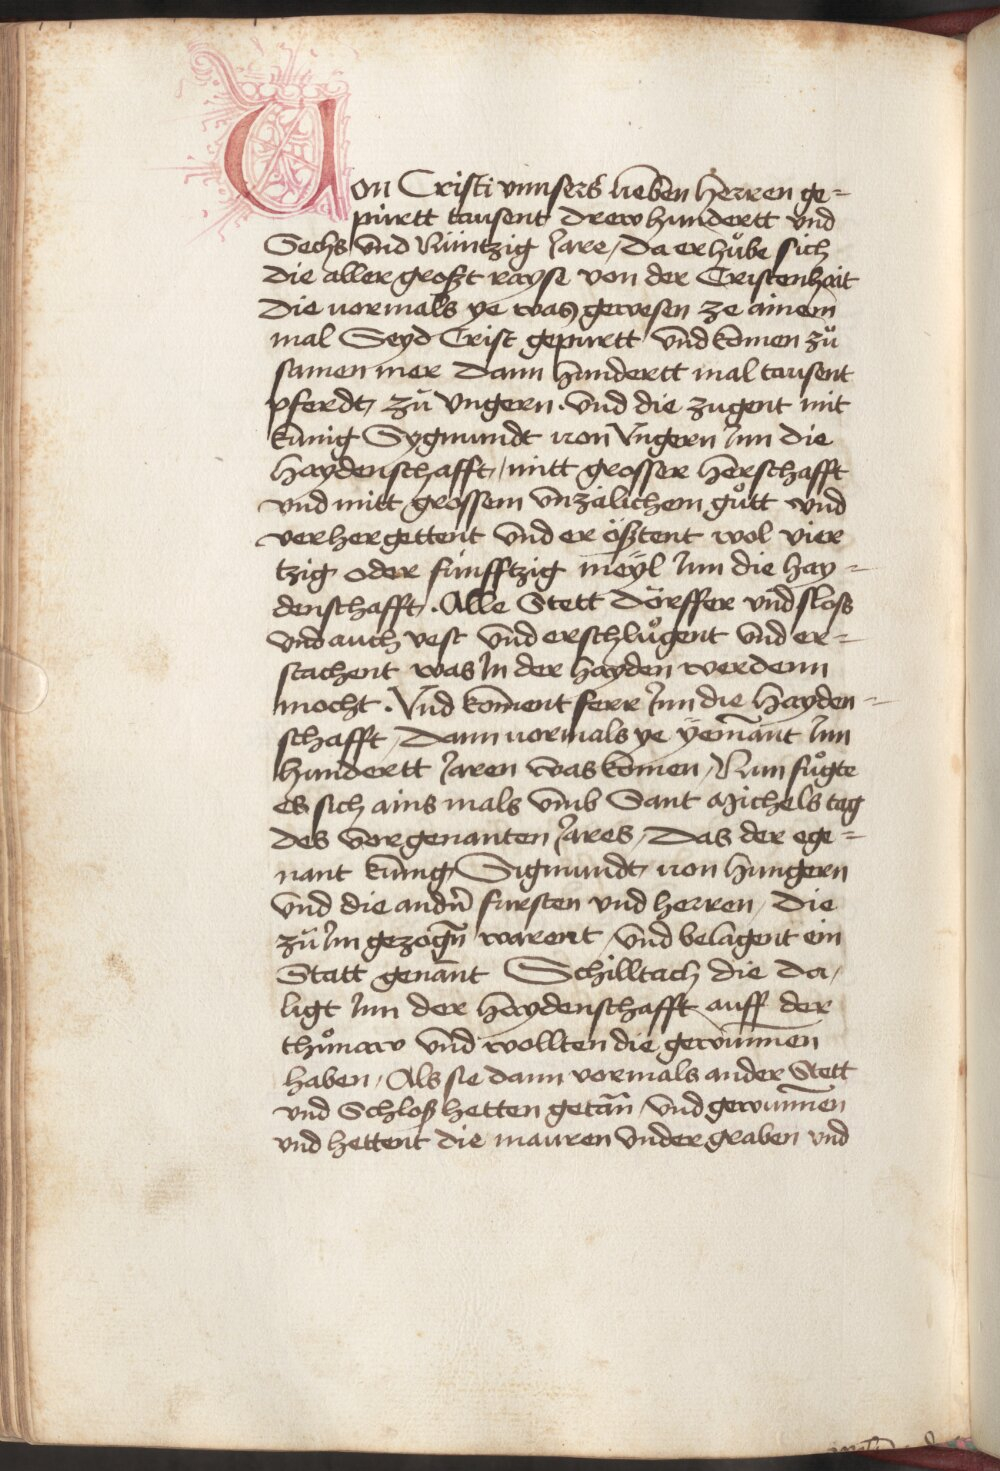 Von Cristi vnnsers lieben herren ge=
púrtt tausent drew hundertt vnd
Sechs vnd Núntzig Jare / da erhůbe sich
die aller großt rayse von der Cristenhait
die vormals ye was gewesen ze ainem
mal Seyd Crist gepurtt vnd komen zů
samen mer dann hundertt mal tausent
pferdt zů Vngern . vnd die zugent mit
kúnig Sygmundt von Vngern Jnn die
haydenschafft / mitt grosser herschafft
vnd mitt grossem vnzalichem gůtt vnd
verhergettent vnd er ößtent wol vier
tzig oder fúnfftzig meÿl Jnn die hay=
denschafft . Alle Stett dörffer vnd sloß
vnd auch vest vnd erschlůgent vnd er=
stachent was Jn der hayden werdenn
mocht . Vnd kom̄ent ferr Jnn die hayden=
schafft / Dann vormals ye yemant Jnn
hundertt Jaren was komen / Nun fůgte
es sich ains mals vmb Sant Michels tag
des vorgenanten Jares / Das der ege=
nant kúnig Sigmundt von hungern
vnd die andn̄ fursten vnd herren / die
zů Jm gezogn̄ warent / vnd belagent ein
Statt genant Schilltach die da /
ligt Jnn der haydenschafft auff der
thůnaw vnd wollten die gewinnen
haben / Als sie dann vormals ander Stett
vnd Schloß hetten getan / vnd gewunnen
vnd hettent die mauren vndergraben vnd